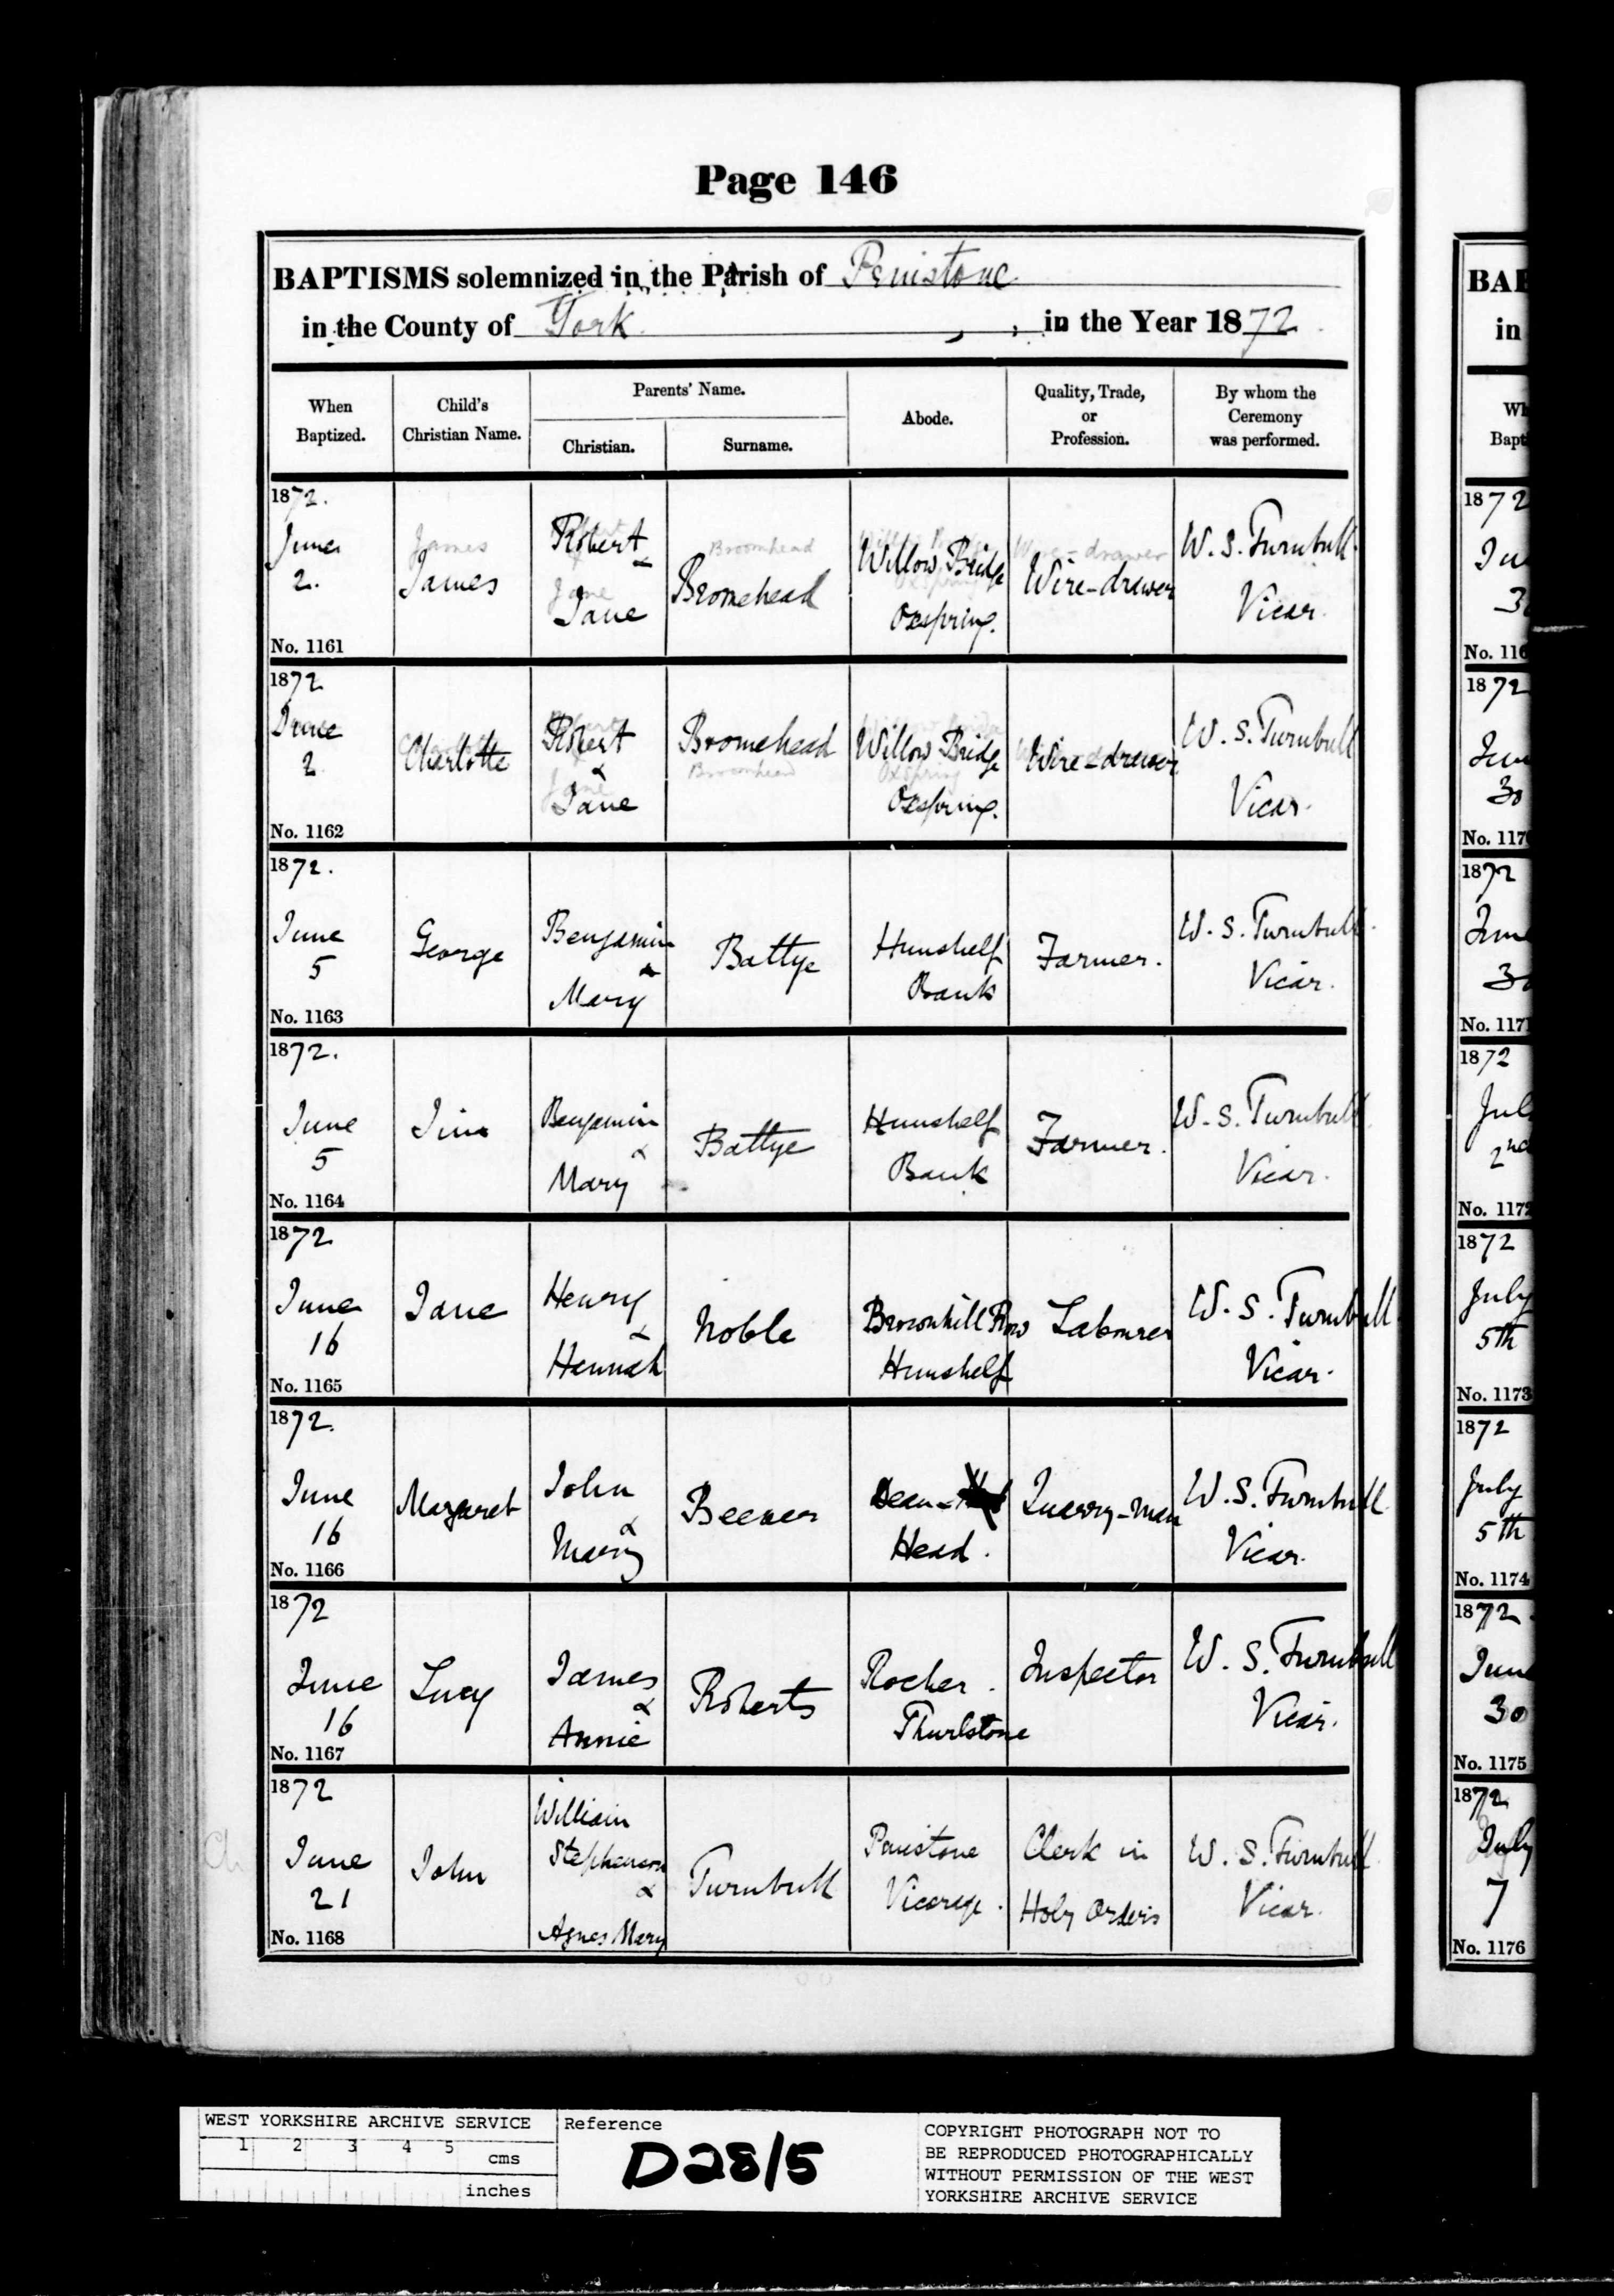 Page 146
BAPTISMS solemnized in the Parish of Penistone
in the County of York, in the Year 1872.
When Baptized.
Child's Christian Name.
Parents' Name.
Christian.
Surname.
Abode.
Quality, Trade, or Profession.
By whom the Ceremony was performed.
1872.
June 2.
No. 1161
James
James
Robert &
Jane
Jane
Broomhead
Bromehead
Willow Bridge
Oxspring.
Wire-drawer
Wire-drawer
W. S. Turnbull
Vicar.
1872
June 2
No. 1162
Charlotte
Robert
&
Jane
Bromehead
Broomhead
Willow Bridge
Oxspring
Oxspring.
Wire-drawer
W. S. Turnbull
Vicar.
1872.
June 5
No. 1163
George
Benjamin
&
Mary
Battye
Hunshelf
Bank
Farmer.
W. S. Turnbull.
Vicar.
1872.
June 5
No. 1164
Benjamin
&
Mary
Battye
Hunshelf
Bank
Farmer.
W. S. Turnbull
Vicar.
1872
June 16
No. 1165
Jane
Henry
&
Hannah
Noble
Brownhill Row
Hunshelf
Labourer
W. S. Turnbull
Vicar.
1872.
June 16
No. 1166
Margaret
John
&
Mary
Beever
Dean-
Head.
Quarry-man
W. S. Turnbull.
Vicar.
1872
June 16
No. 1167
Lucy
James
&
Annie
Roberts
Rocher.
Thurlstone
Inspector
W. S. Turnbull
Vicar.
1872
June 21
No. 1168
John
William
Stephenson
&
Agnes Mary
Turnbull
Penistone
Vicarage.
Clerk in
Holy Orders
W. S. Turnbull.
Vicar.
BAP
in
1872
3
No. 116
1872
30
No. 117
1872
No. 1171
1872
2nd
No. 1172
1872
July
5th
No. 1173
1872
July
5th
No. 1174
1872
June
30
No. 1175
1872
July
7
No. 1176
WEST YORKSHIRE ARCHIVE SERVICE
1 2 3 4 5
cms
inches
Reference
D28/5
COPYRIGHT PHOTOGRAPH NOT TO
BE REPRODUCED PHOTOGRAPHICALLY
WITHOUT PERMISSION OF THE WEST
YORKSHIRE ARCHIVE SERVICE